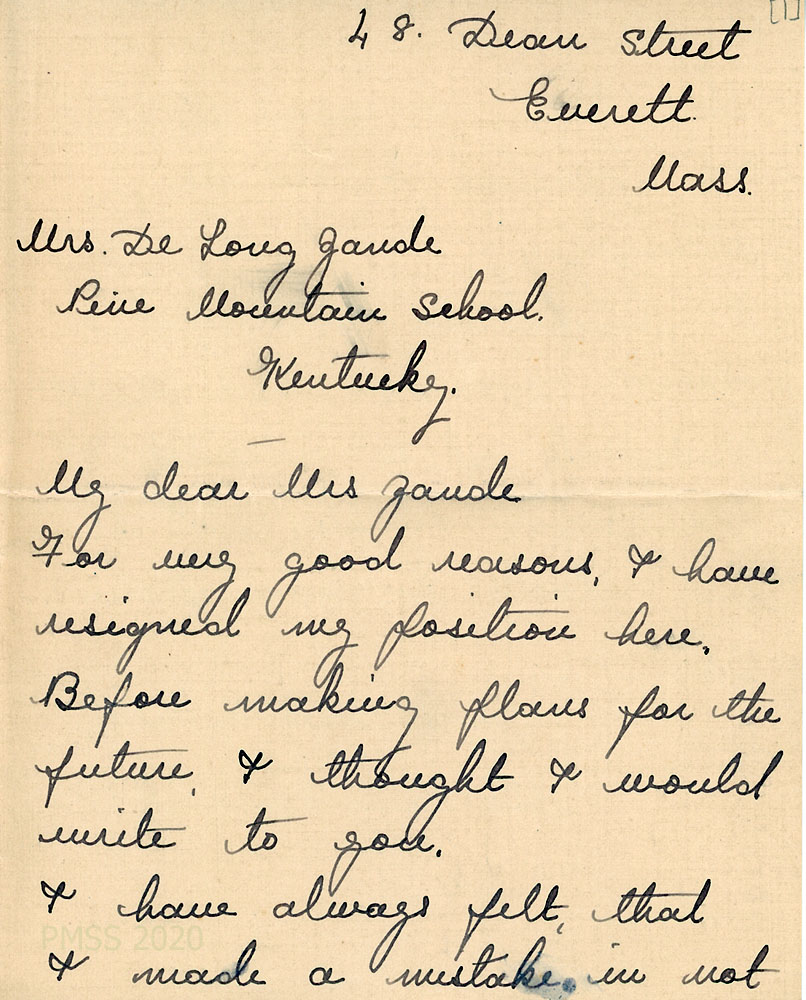 [1]
48. Dean Street
Everett.
Mass.
Mrs. De Long Zande
Pine Mountain School.
Kentucky.
My dear Mrs Zande
For very good reasons, I have
resigned my position here.
Before making plans for the
future, I thought I would
write to you.
I have always felt, that
PMSS 2020
I made a mistake, in not